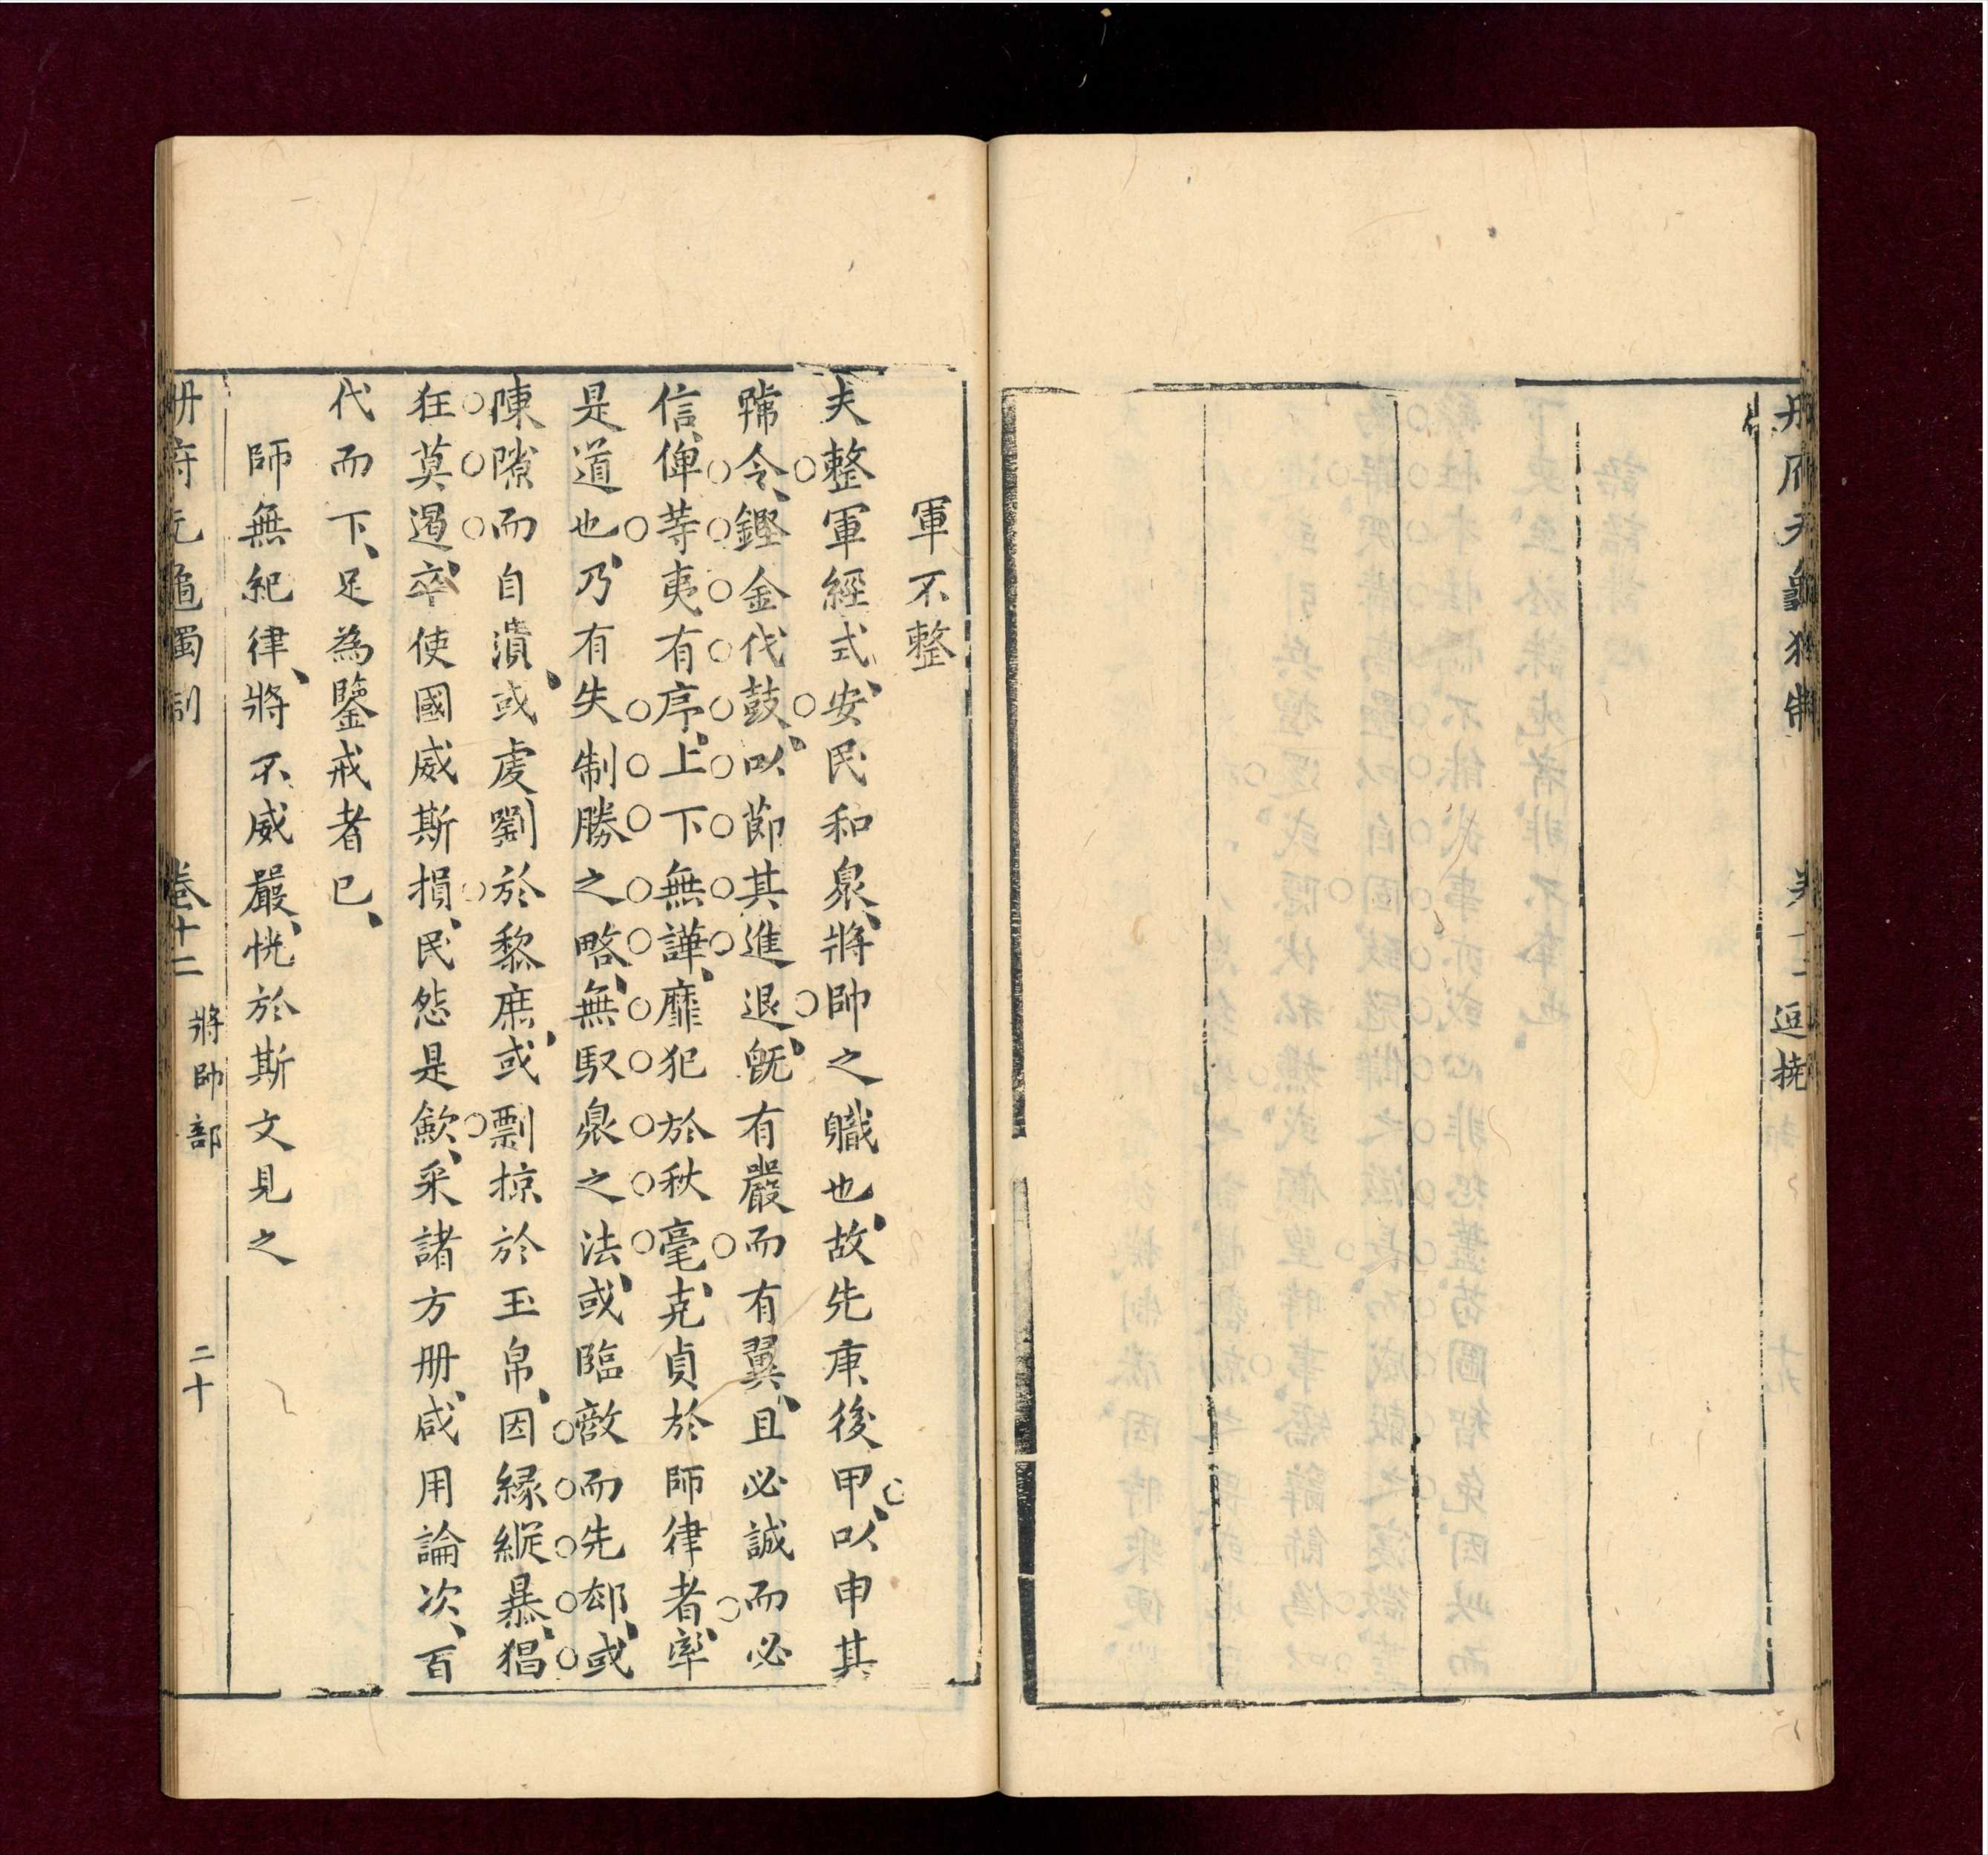 逗撓
軍不整
夫整軍經式、安民和衆、將帥之職也、故先庚後甲、以申其
號令、鏗金伐鼓、以節其進退、旣有嚴而有翼、且必誠而必
信、俾等夷有序、上下無譁、靡犯於秋毫、克貞於師律者、率
是道也、乃有失制勝之略、無馭衆之法、或臨敵而先郄、或
陳隙而自潰、或虔劉於黎庶、或剽掠於玉帛、因緣縱暴、猖
狂莫遏、卒使國威斯損、民怨是歛、采諸方册、咸用論次、百
代而下、足為鑒戒者已、
師無紀律、將不威嚴、恍於斯文見之
册府元龜獨制 卷十二 將帥部 二十